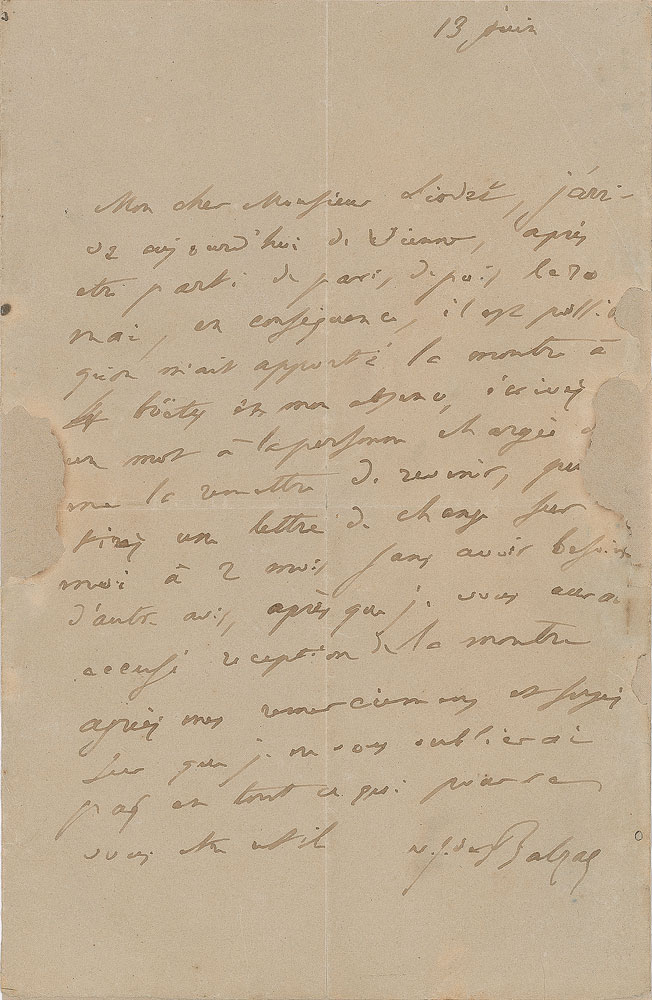 13 juin
Mon cher Monsieur Liodet, j'arri-
ve aujourd'hui de Vienne, après
etre parti de paris, depuis le
mai, en conséquence, il est possib
qu'on m'ait apporté la montre à
boëtes en mon absence, écrivez
un mot à la personne chargée d
me la remettre de revenir, pu
tirez une lettre de change sur
moi à 2 mois sans avoir besoin
d'autre avis, après que je vous aurai
accusé reception de la montre
agréez mes remerciemens et soyez
sur que je ne vous oublierai
pas en tout ce qui pourra
vous etre utile
de Balzac